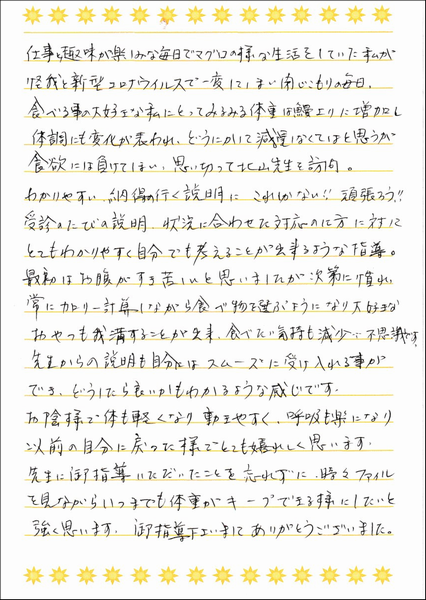 仕事と趣味が楽しみな毎日でマグロの様な生活をしていた私が
怪我と新型コロナウイルスで一変してしまい閉じこもりの毎日。
食べる事の大好きな私にとってみるみる体重は鰻上りに増加し
体調にも変化が表われ、どうにかして減量しなくてはと思うが
食欲には負けてしまい、思い切って北山先生を訪問。
わかりやすい、納得の行く説明に これしかない!! 頑張ろう!!
受診のたびの説明、状況に合わせた対応の仕方に対し
とてもわかりやすく自分でも考えることが出来るような指導。
最初はお腹がすき苦しいと思いましたが次第に慣れ
常にカロリー計算しながら食べ物を選ぶようになり大好きな
おやつも我満することが出来、食べたい気持も減少…不思議です。
先生からの説明も自分にはスムーズに受け入れる事が
でき、どうしたら良いかもわかるような感じです。
お陰様で体も軽くなり動きやすく、呼吸も楽になり
以前の自分に戻った様でとても嬉れしく思います。
先生に御指導いただいたことを忘れずに、時々ファイル
を見ながらいつまでも体重がキープできる様にしたいと
強く思います。御指導下さいまして ありがとうございました。